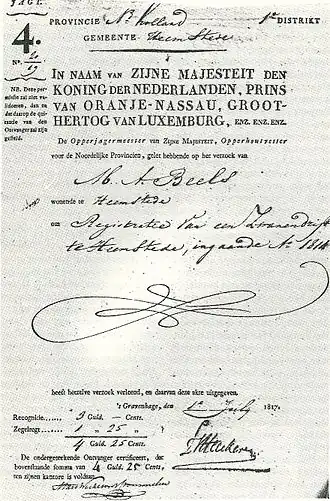 PAGE
PROVINCIE Nd. Holland 1e DISTRIKT
GEMEENTE Heemstede
4.
No.
IN NAAM VAN ZIJNE MAJESTEIT DEN
KONING DER NEDERLANDEN, PRINS
VAN ORANJE-NASSAU, GROOT-
HERTOG VAN LUXEMBURG, ENZ. ENZ. ENZ.
NB. Deze per-
missie zal niet va-
lideren, dan na-
dat daarop de qui-
tantie van den
Ontvanger zal zijn
gesteld.
De Opperjagermeester van ZIJNE MAJESTEIT, Opperhoutvester
voor de Noordelijke Provincien, gelet hebbende op het verzoek van
M. A. Beels
wonende te Heemstede
om Registratie Van een Zwanendrift
te Heemstede, ingaande Ao 1814
heeft hetzelve verzoek verleend, en daarvan deze akte uitgegeven.
's Gravenhage, den 1e July 1817.
Recognitie. 3 Guld. — Cents.
Zegelregt 1 „ 25 „
4 Guld. 25 Cents.
De ondergeteekende Ontvanger certificeert, dat
bovenstaande somma van 4 Guld. 25 Cents,
ten zijnen kantore is voldaan